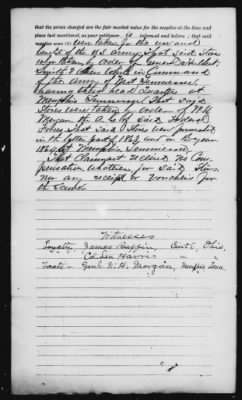 that the prices charged are the fair market value for the supplies at the time and
place last mentioned, as your petitioner is informed and believes; that said
were taken for the use and
benefit of the U.S. Army, That said stores
were taken by order of General
& others while in Command
of the Army of West Tennessee
having their head Quarters at
Memphis Tennessee, That said
Stores were taken by order of
Morgan said Federal
Forces, that said Stores were furnished
in the latter part of 1863, and in
1864, at Memphis Tennessee.
That Claimant received no Com-
pensation whatever for said Stores,
Nor any receipt or Vouchers for
the Same
Witnesses
Loyalty, James Ruffin,
Harris " "
Facts— Genl. W. H. Morgan, Memphis Tenn.